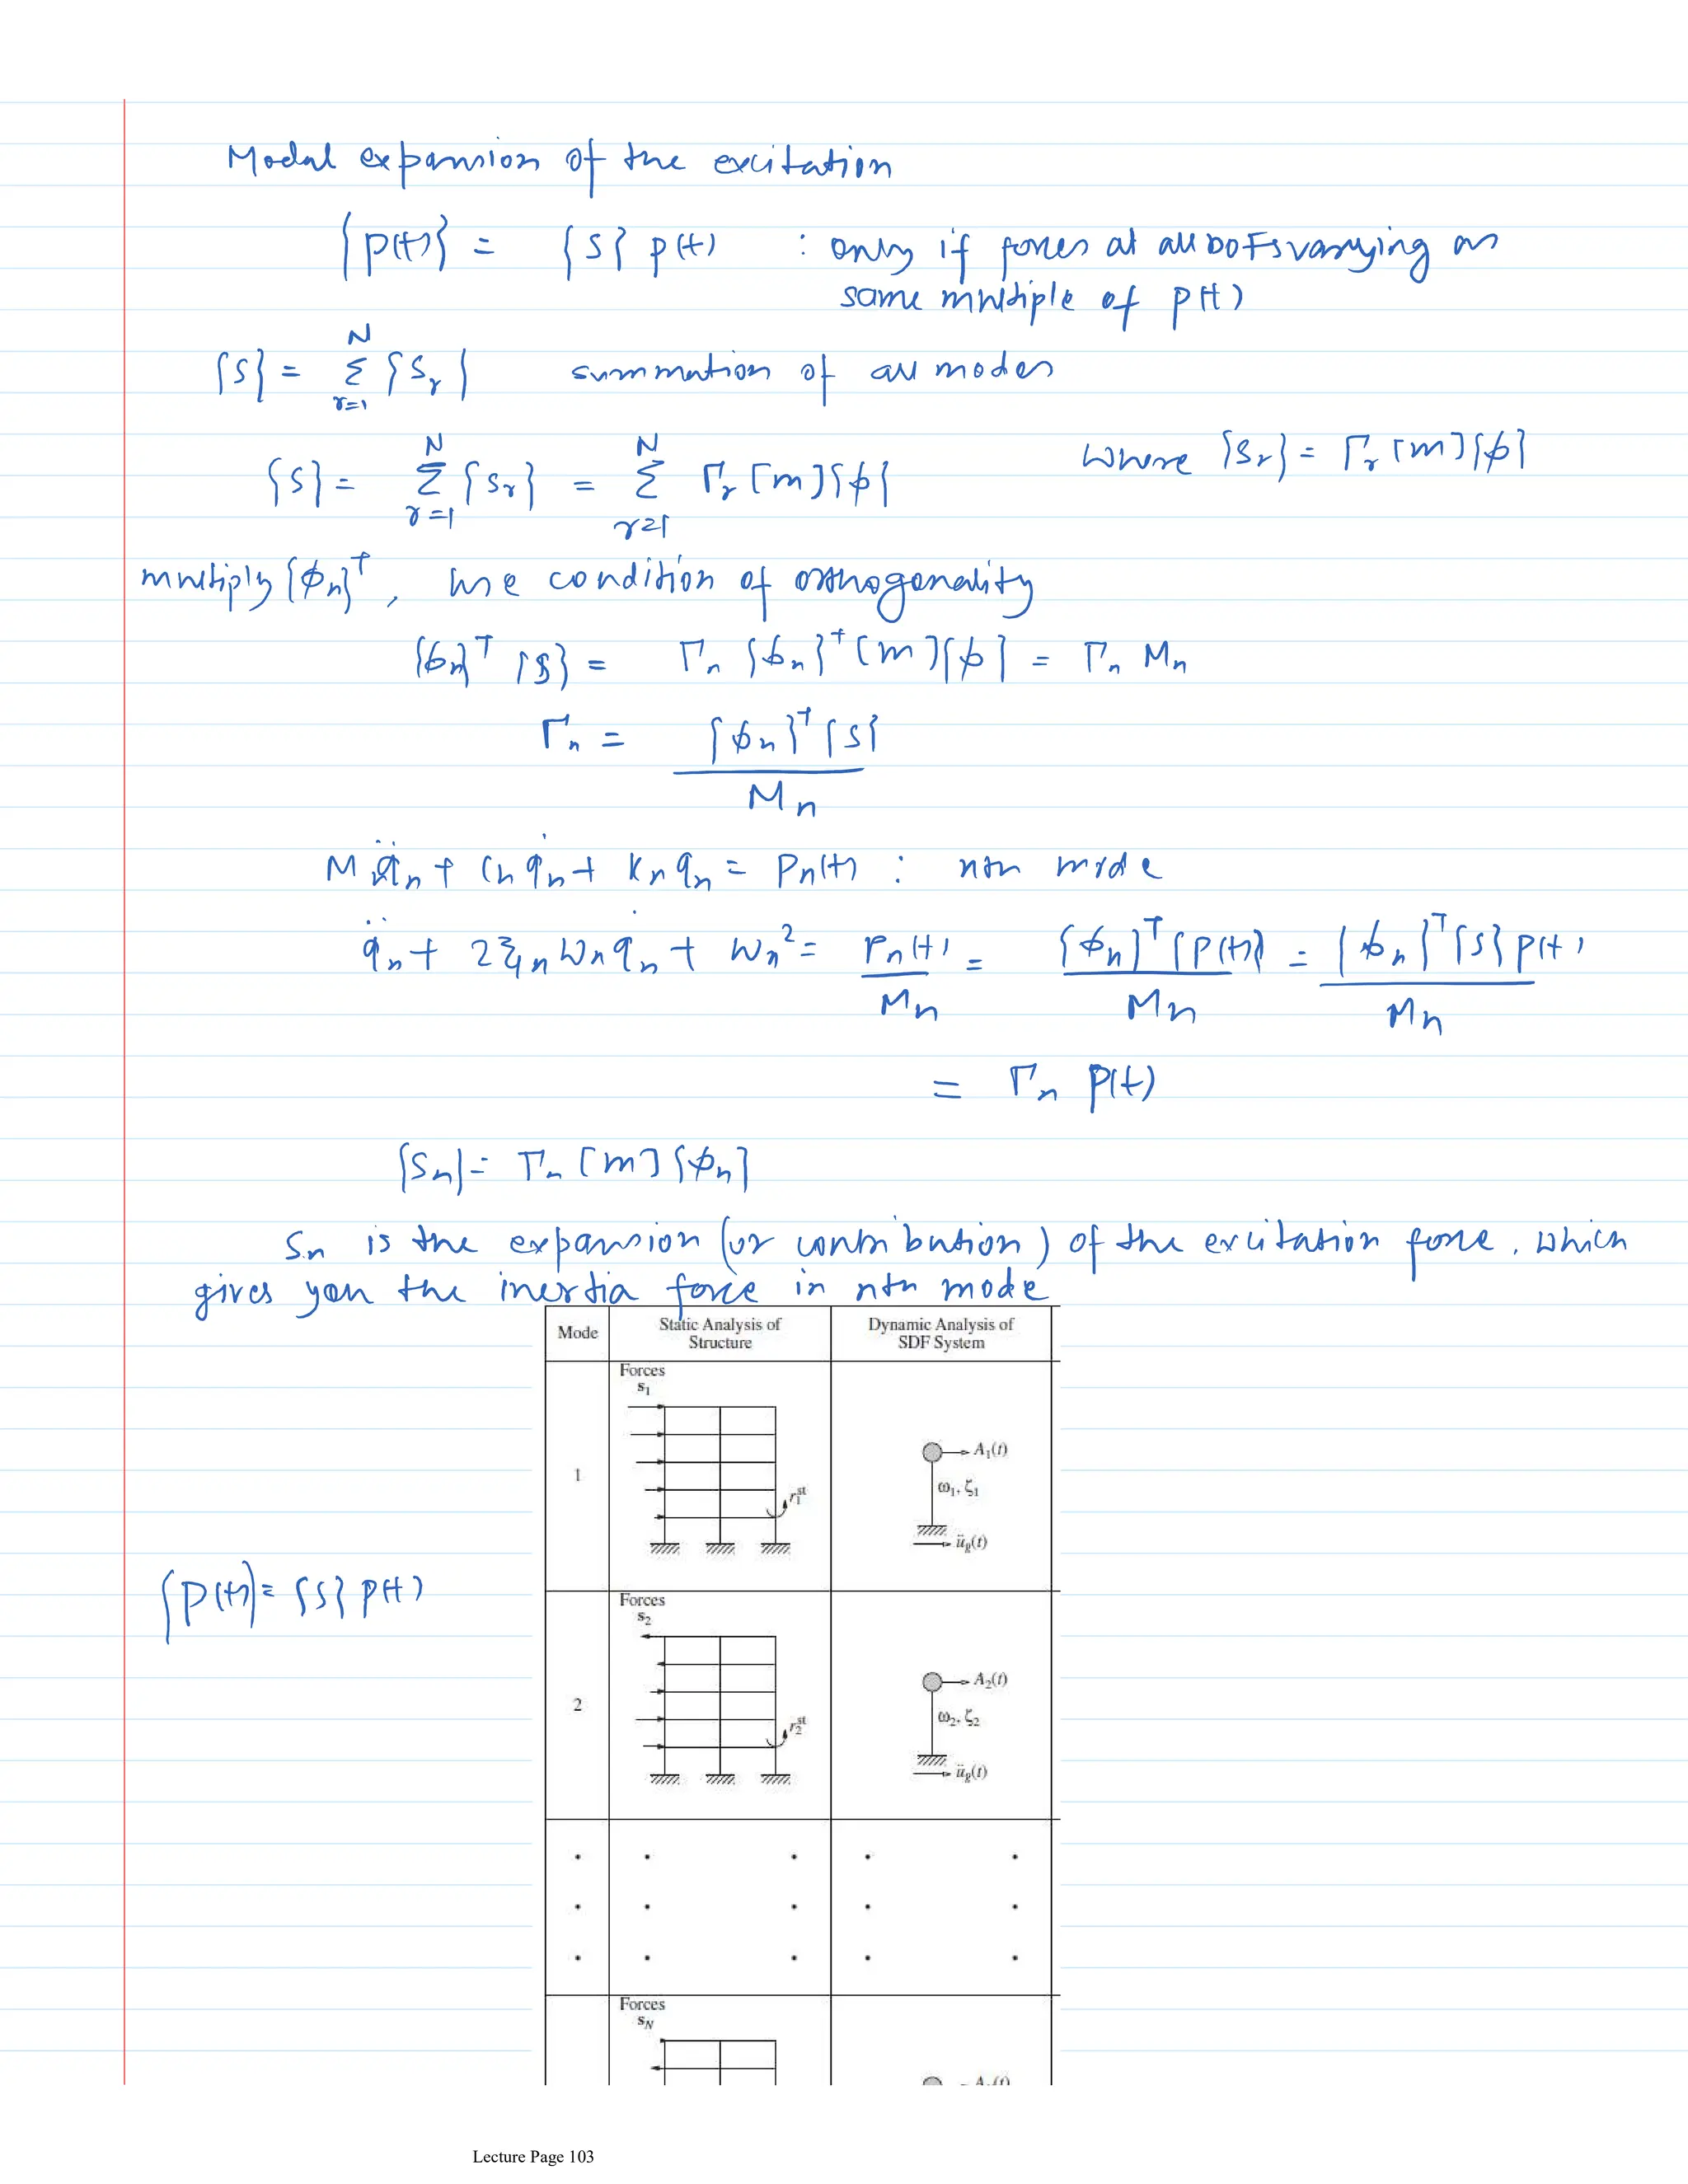 Modal expansion of the excitation
{P(t)} = {s} p(t) : only if forces at all DOFs varying as
same multiple of p(t)
{s} = Σ_{r=1}^{N} {s_r} summation of all modes
{s} = Σ_{r=1}^{N} {s_r} = Σ_{r=1}^{N} Γ_r [m]{φ} where {s_r} = Γ_r [m]{φ}
multiply {φ_n}^T, use condition of orthogonality
{φ_n}^T {s} = Γ_n {φ_n}^T [m]{φ} = Γ_n M_n
Γ_n = {φ_n}^T {s} / M_n
M q̈_n + C_n q̇_n + K_n q_n = P_n(t) : nth mode
q̈_n + 2ξ_n ω_n q̇_n + ω_n² = P_n(t) / M_n = {φ_n}^T {P(t)} / M_n = {φ_n}^T {s} p(t) / M_n
= Γ_n p(t)
{s_n} = Γ_n [m] {φ_n}
s_n is the expansion (or contribution) of the excitation force, which
gives you the inertia force in nth mode
Mode Static Analysis of Structure Dynamic Analysis of SDF System
Forces
s₁
A₁(t)
1
ω₁, ζ₁
r₁^st
ü_g(t)
{P(t)} = {s} p(t)
Forces
s₂
A₂(t)
2
ω₂, ζ₂
r₂^st
ü_g(t)
Forces
s_N
Lecture Page 103